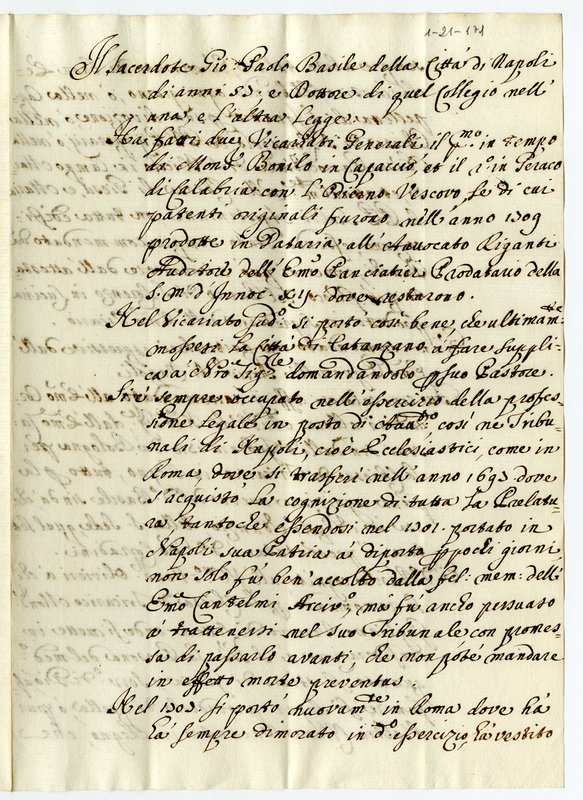 1-21-171
Il Sacerdote Gio: Paolo Basile della Città di Napoli
di anni 53. e Dottore di quel Collegio nell'
una, e l'altra Legge.
Ha fatti due Vicariati Generali il pmo: in tempo
di Monsr Bonito in Capaccio, et il 2o: in Geraco
di Calabria con l'Odierno Vescovo, le di cui
patenti originali furono nell'anno 1709
prodotte in Dataria all'Avvocato Riganti
Auditore dell'Emo Panciatici Prodatario della
S: M: d'Innoc: XII: dove restarono.
Nel Vicariato sudo: si portò così bene, che ultimamte:
mossesi la Città di Catanzaro à fare suppli-
ca à Nro Sigre domandandolo p suo Pastore.
Si è sempre occupato nell'essercizio della profes-
sione Legale in posto di Avvto: così ne Tribu-
nali di Napoli, cioè Ecclesiastici, come in
Roma, dove si trasferì nell'anno 1693 dove
s'acquistò la cognizione di tutta la Prelatu-
ra tantoche essendosi nel 1701. portato in
Napoli sua Patria à diporto p pochi giorni,
non solo fù ben'accolto dalla fel: mem: dell'
Emo Cantelmi Arcivo:, mà fù ancho persuaso
à trattenersi nel suo Tribunale con promes-
sa di passarlo avanti, che non potè mandare
in effetto morte preventus.
Nel 1703. si portò nuovamte: in Roma dove hà
hà sempre dimorato in do: essercizio, hà vestito